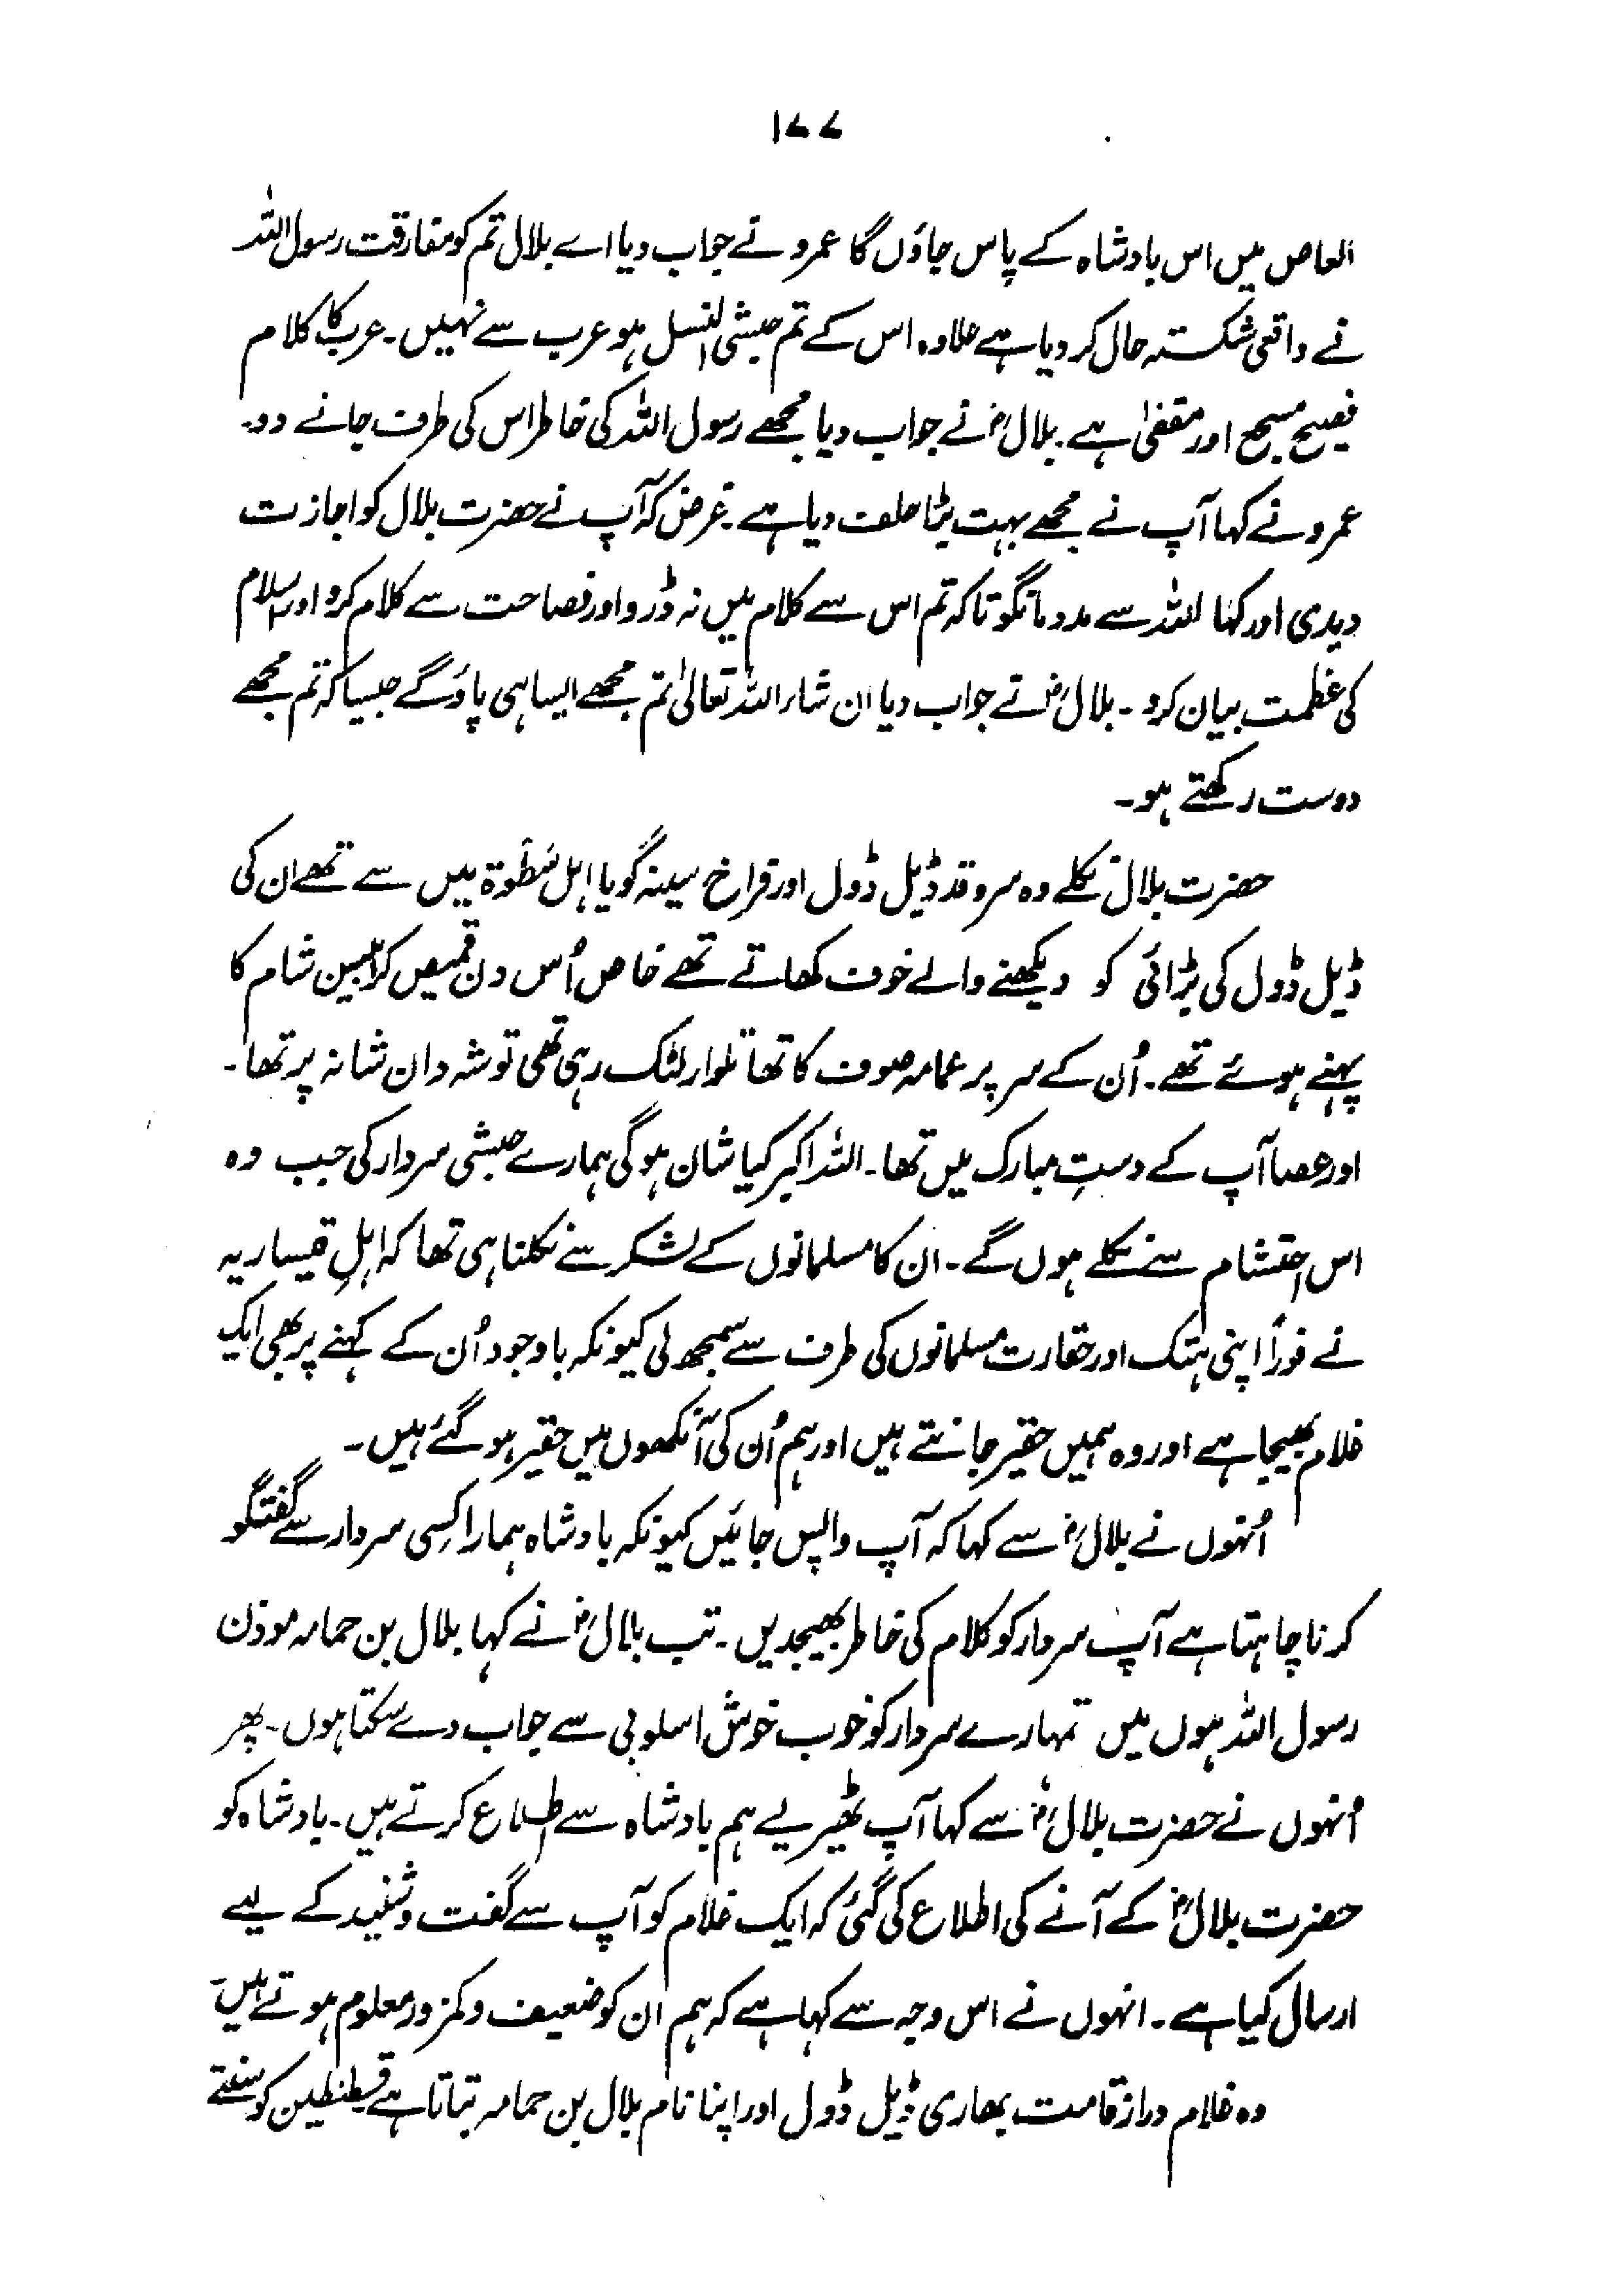 ۱۷۷
العاص میں اس بادشاہ کے پاس جاؤں گا عمرو نے جواب دیا اے بلال تم کو مفارقت رسول اللہ
نے واقعی شکستہ حال کر دیا ہے علاوہ اس کے تم حبشی النسل ہو عرب سے نہیں۔ عرب کا کلام
فصیح مسجع اور مقفیٰ ہے۔ بلالؓ نے جواب دیا مجھے رسول اللہ کی خاطر اس کی طرف جانے دو۔
عمرو نے کہا آپ نے مجھے بہت بڑا حلف دیا ہے۔ غرض کہ آپ نے حضرت بلال کو اجازت
دیدی اور کہا اللہ سے مدد مانگو تاکہ تم اس سے کلام میں نہ ڈرو اور فصاحت سے کلام کرو اور اسلام
کی عظمت بیان کرو۔ بلالؓ نے جواب دیا ان شاء اللہ تعالیٰ تم مجھے ایسا ہی پاؤ گے جیسا کہ تم مجھے
دوست رکھتے ہو۔
حضرت بلالؓ نکلے وہ سرو قد ڈیل ڈول اور فراخ سینہ گویا اہل شطوۃ میں سے تھے ان کی
ڈیل ڈول کی بڑائی کو دیکھنے والے خوف کھاتے تھے خاص اُس دن قمیص کرابیسن شام کا
پہنے ہوئے تھے۔ اُن کے سر پر عمامہ صوف کا تھا تلوار لٹک رہی تھی توشہ دان شانہ پر تھا۔
اور عصا آپ کے دستِ مبارک میں تھا۔ اللہ اکبر کیا شان ہو گی ہمارے حبشی سردار کی جب وہ
اس احتشام سے نکلے ہوں گے۔ ان کا مسلمانوں کے لشکر سے نکلنا ہی تھا کہ اہلِ قیساریہ
نے فوراً اپنی ہتک اور حقارت مسلمانوں کی طرف سے سمجھ لی کیونکہ باوجود اُن کے کہنے پر بھی ایک
غلام بھیجا ہے اور وہ ہمیں حقیر جانتے ہیں اور ہم اُن کی آنکھوں میں حقیر ہو گئے ہیں۔
اُنہوں نے بلالؓ سے کہا کہ آپ واپس جائیں کیونکہ بادشاہ ہمارا کسِی سردار سے گفتگو
کرنا چاہتا ہے آپ سردار کو کلام کی خاطر بھیجدیں۔ تب بلالؓ نے کہا بلال بن حمامہ موذن
رسول اللہ ہوں میں تمہارے سردار کو خوب خوش اسلوبی سے جواب دے سکتا ہوں۔ پھر
اُنہوں نے حضرت بلالؓ سے کہا آپ ٹھیریے ہم بادشاہ سے اطلاع کرتے ہیں۔ بادشاہ کو
حضرت بلالؓ کے آنے کی اطلاع کی گئی کہ ایک غلام کو آپ سے گفت و شنید کے لیے
ارسال کیا ہے۔ انہوں نے اس وجہ سے کہا ہے کہ ہم ان کو ضعیف و کمزور معلوم ہوتے ہیں۔
وہ غلام دراز قامت بھاری ڈیل ڈول اور اپنا نام بلال بن حمامہ بتاتا ہے قسطنطین کو سنتے